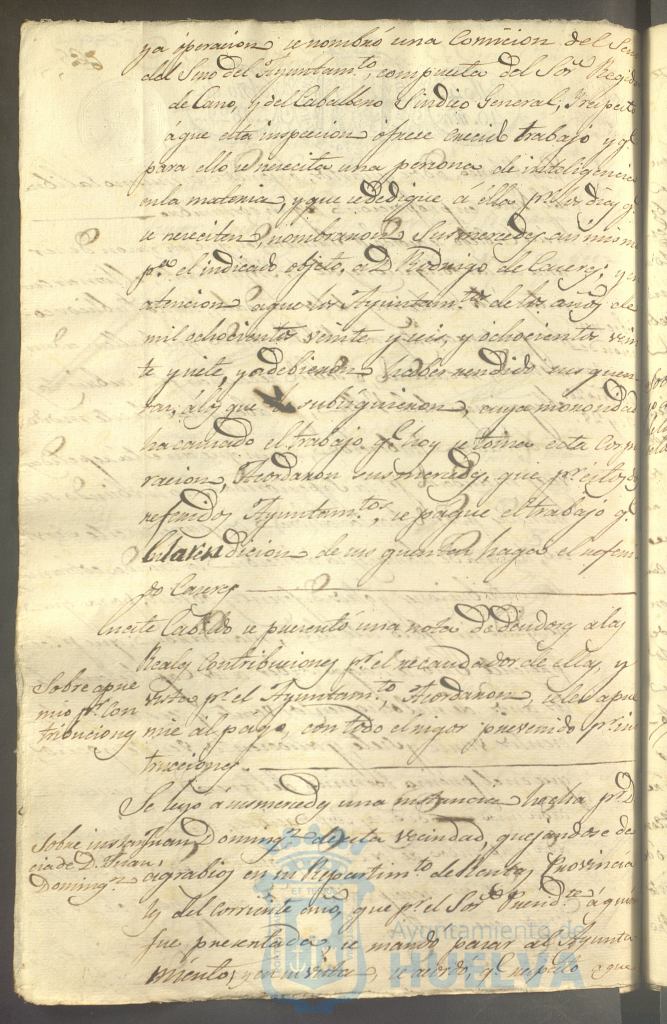 ya operacion se nombró una Comicion del Seno
del Seno del Ayuntamto, compuesta del Sor Regidor
de Cano, y del Caballero Sindico General; y respecto
á que esta inspeccion ofrece crecido trabajo y qe
para ello se necesita una persona de inteligencia
en la materia, y que se dedique á ella pr los dias qe
se necesiten, nombraron Sus mercedes asi mismo
pa el indicado objeto, a D. Rodrigo de Caceres; y en
atencion aque los Ayuntamtos de los años de
mil ochocientos veinte y seis, y ochocientos vein
te y siete, ya debieron haber rendido sus quen
tas, á los que subsiguieron, cuya morosidad
ha causado el trabajo qe hoy se toma esta Corpo
racion, Acordaron sus mercedes, que pr
referidos Ayuntamtos, se pague el trabajo qe
en la rendicion de sus quentas haga el referi
do Caceres
En este Cabildo se presentó una nota de deudores a las
Reales Contribuciones pr el recaudador de ellas, y
Sobre apre
mio pr Con
tribuciones
vista pr el Ayuntamto, Acordaron, se les apre
mie al pago, con todo el rigor prevenido pr ins
trucciones
Se leyo á sus mercedes una instancia hecha pr D.
Sobre instan
cia de D. Juan
Domingz
Juan Domingz de esta vecindad, quejandose de
agrabios en su Repartimto de Rentas Provincia
les del corriente año, que pr el Sor Presidte á quien
fue presentada, se mandó pasar al Ayunta
miento; y en su vista, se acordó, qe respecto a que
Ayuntamiento de
HUELVA